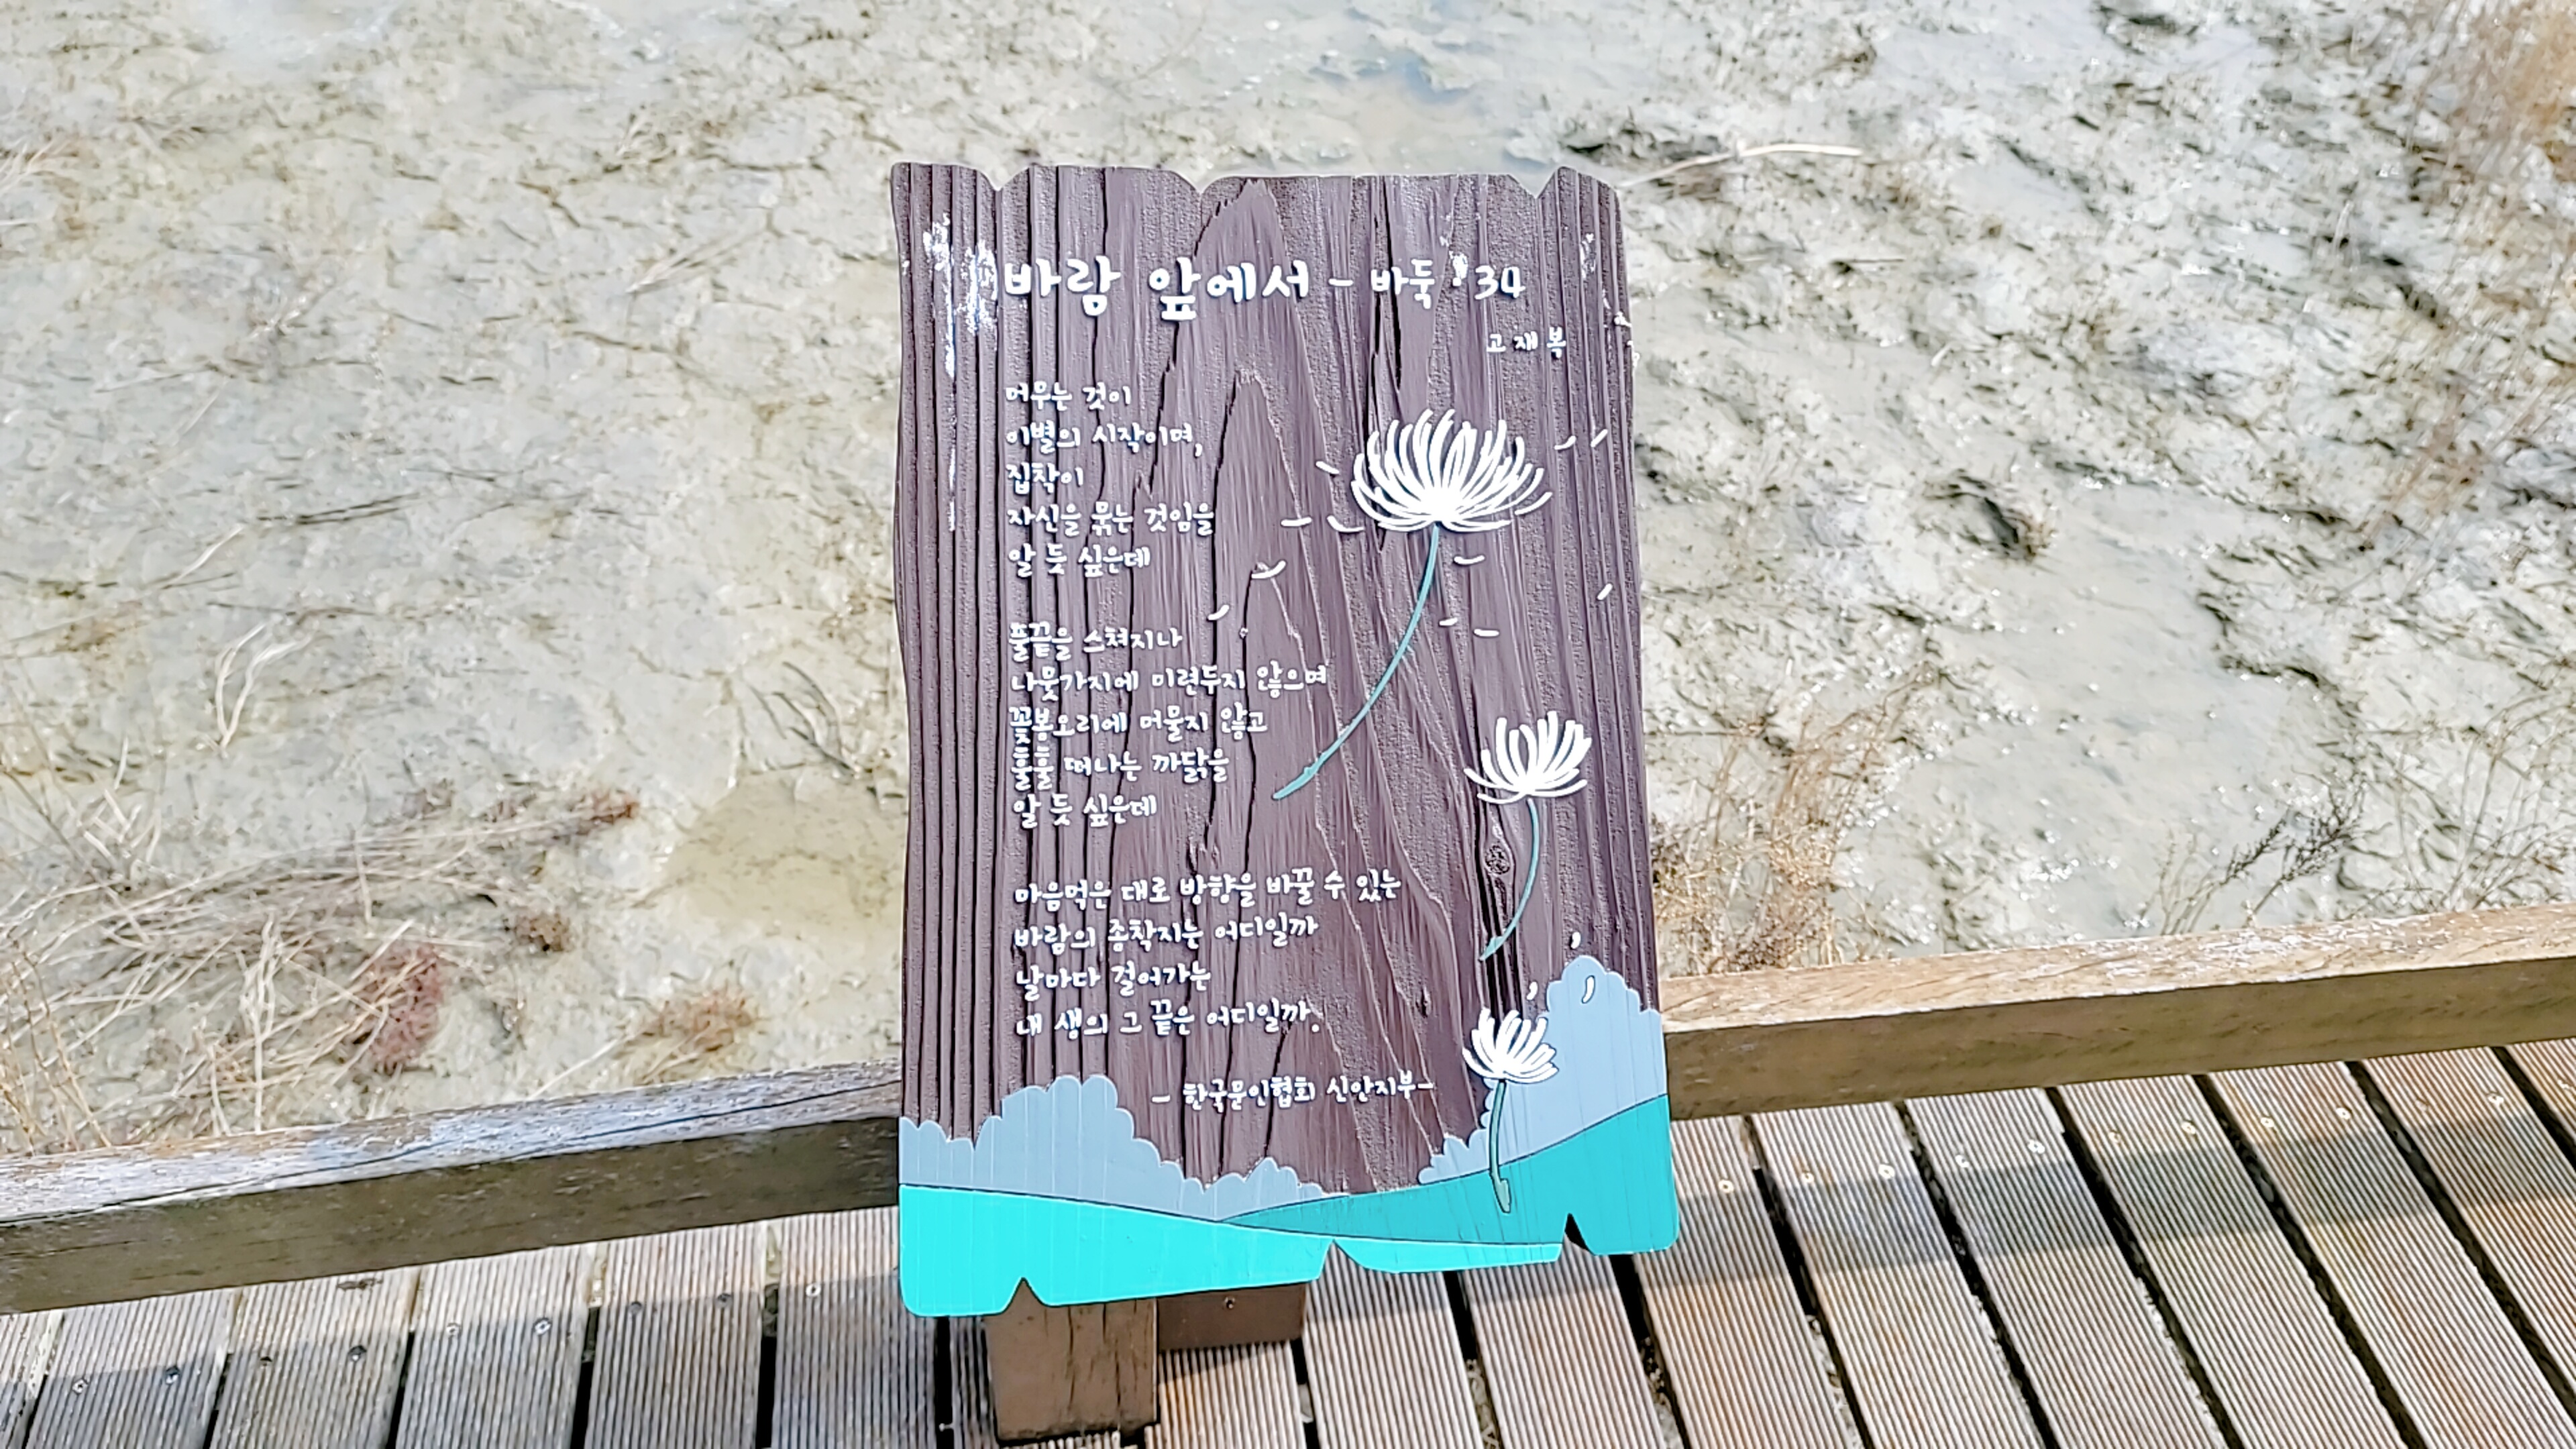 바람 앞에서 - 바둑 · 34
고재복
머무는 것이
이별의 시작이며,
집착이
자신을 묶는 것임을
알 듯 싶은데
풀끝을 스쳐지나
나뭇가지에 미련두지 않으며
꽃봉오리에 머물지 않고
훌훌 떠나는 까닭을
알 듯 싶은데
마음먹은 대로 방향을 바꿀 수 있는
바람의 종착지는 어디일까
날마다 걸어가는
내 생의 그 끝은 어디일까.
- 한국문인협회 신안지부-